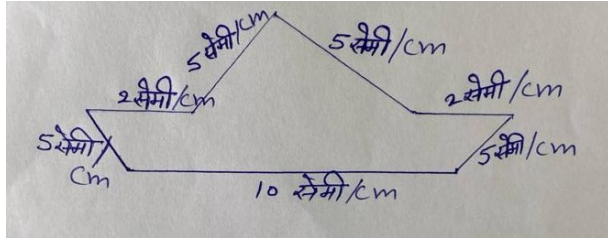 5 सेमी/cm
5 सेमी/cm
2 सेमी/cm
2 सेमी/cm
5 सेमी/
cm
5 सेमी/cm
10 सेमी/cm